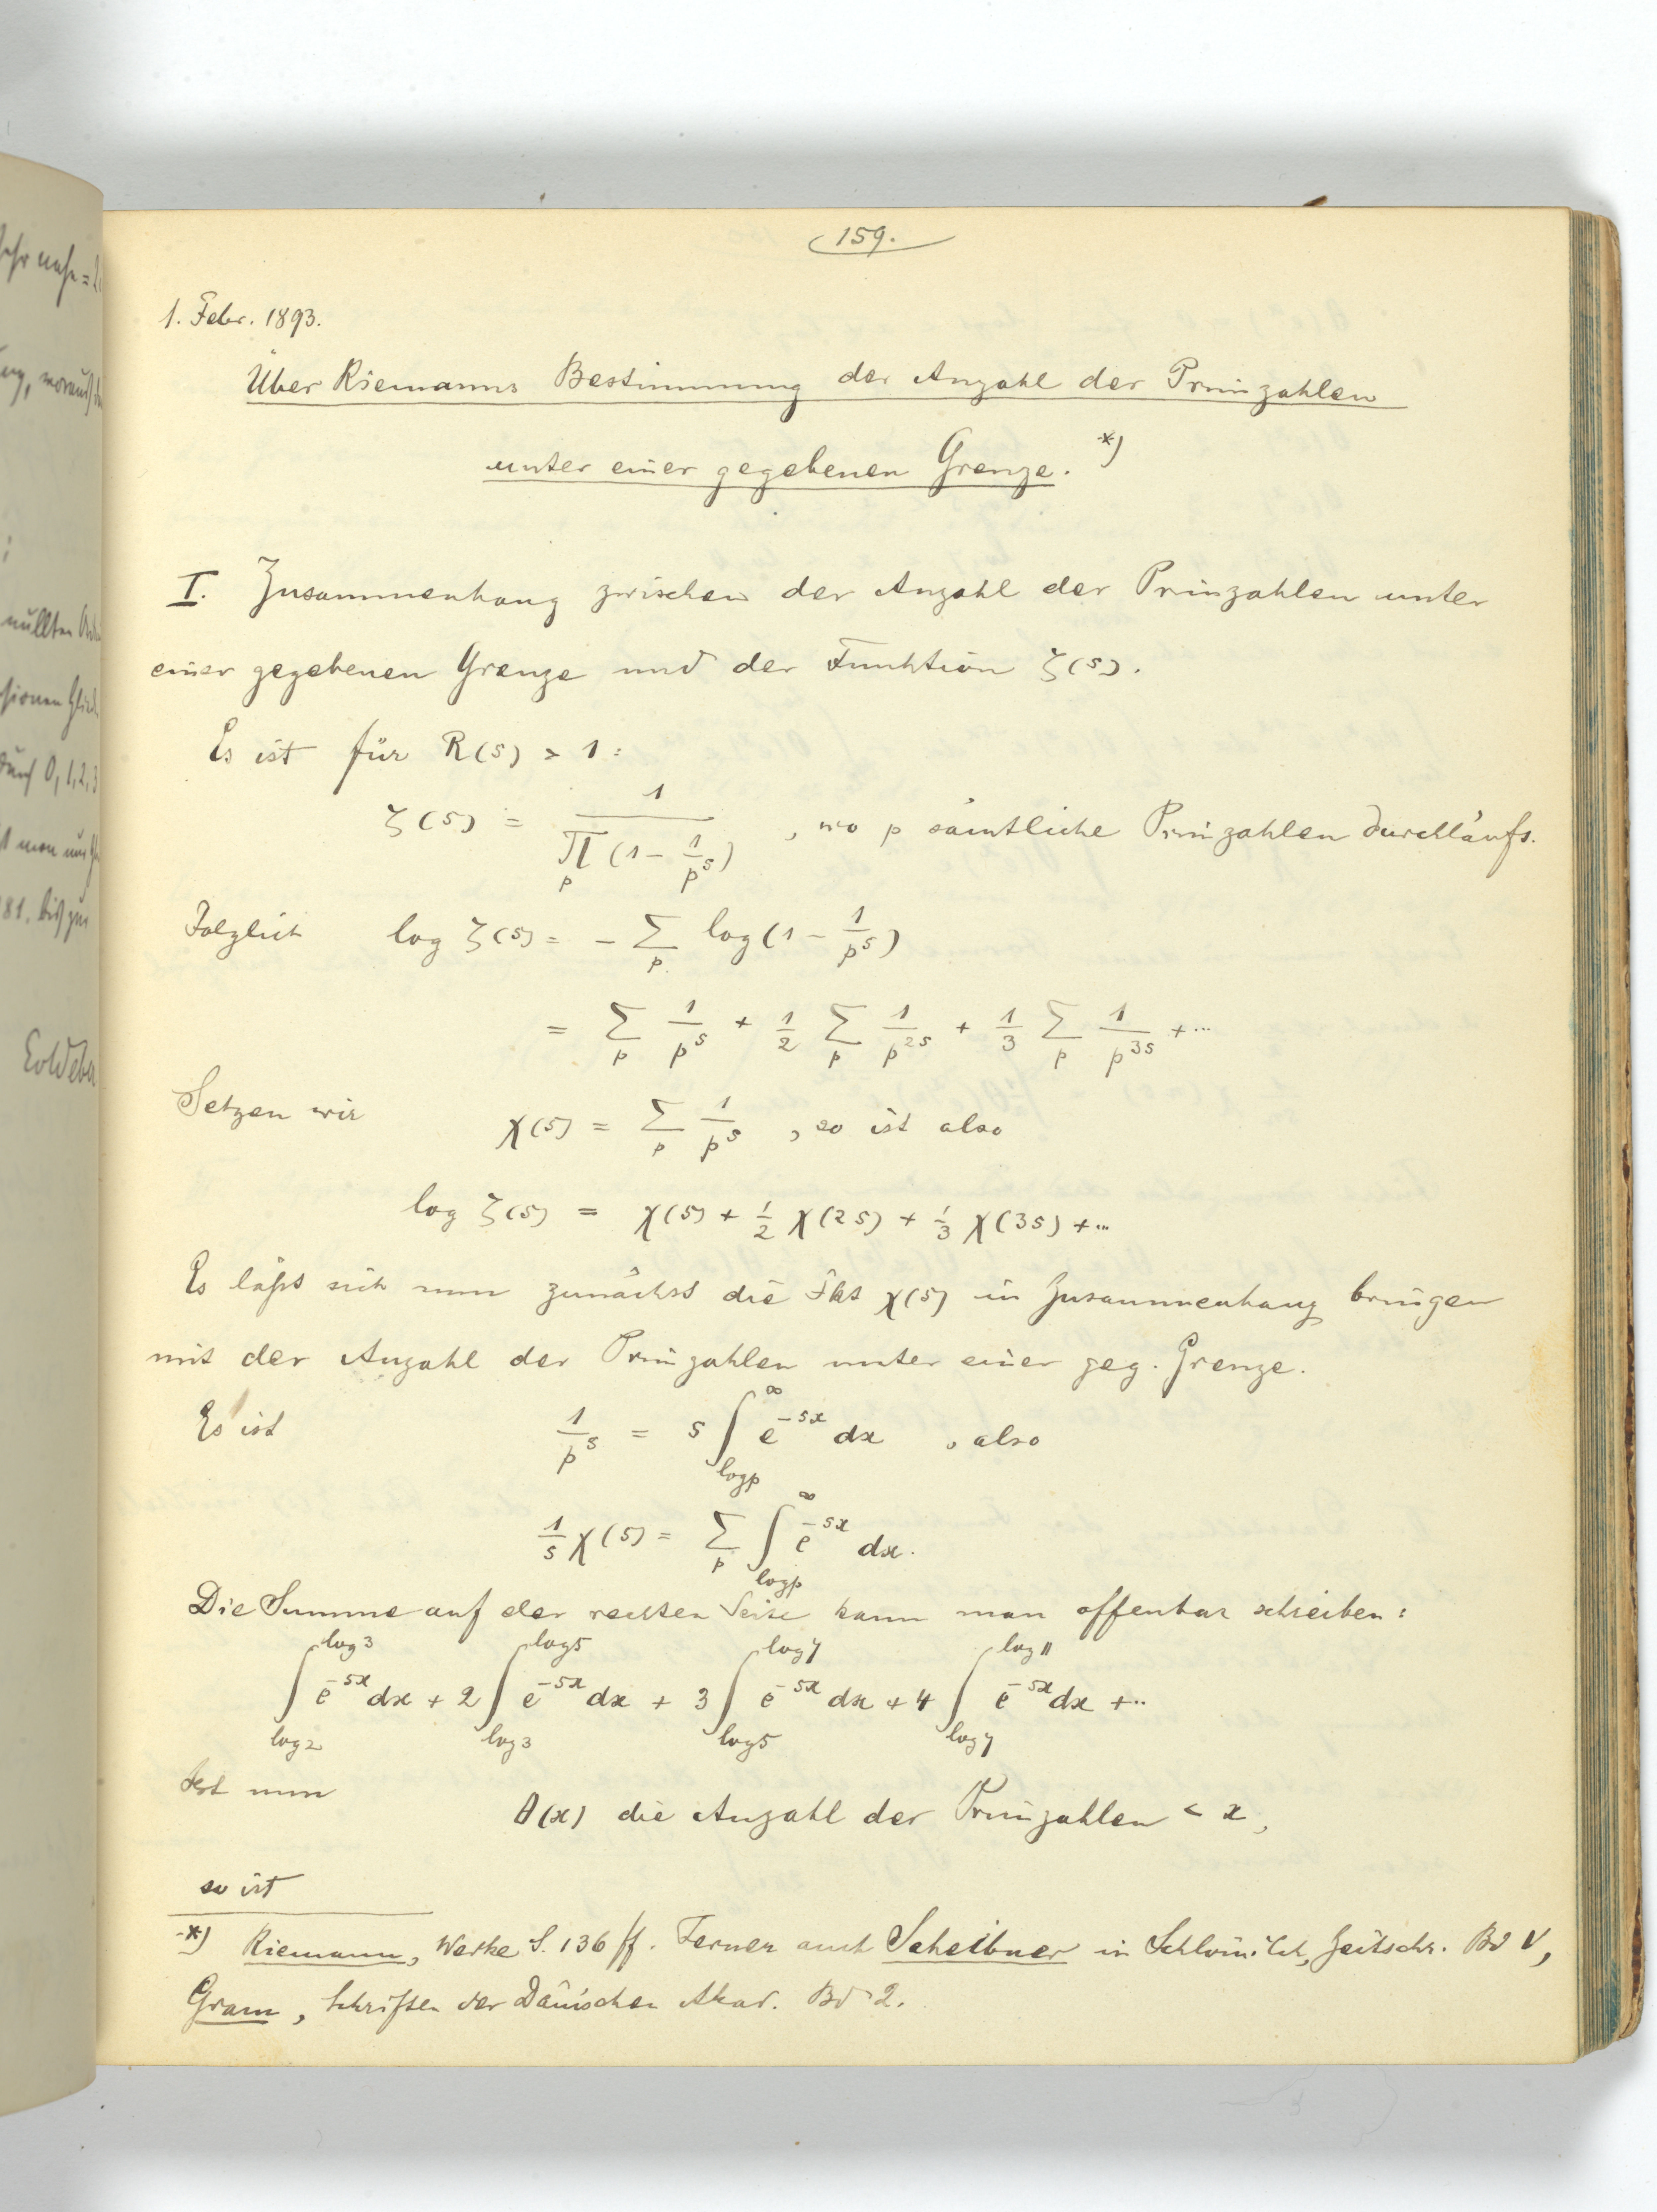 159.
1. Febr. 1893.
Über Riemanns Bestimmung der Anzahl der Primzahlen
unter einer gegebenen Grenze. *)
I. Zusammenhang zwischen der Anzahl der Primzahlen unter
einer gegebenen Grenze und der Funktion ζ(s).
Es ist für R(s) > 1:
ζ(s) = 1 / ∏_p (1 - 1/p^s) , wo p sämtliche Primzahlen durchläuft.
Folglich log ζ(s) = - ∑_p log(1 - 1/p^s)
= ∑_p 1/p^s + 1/2 ∑_p 1/p^{2s} + 1/3 ∑_p 1/p^{3s} + ...
Setzen wir χ(s) = ∑_p 1/p^s , so ist also
log ζ(s) = χ(s) + 1/2 χ(2s) + 1/3 χ(3s) + ...
Es läßt sich nun zunächst die Fkt χ(s) in Zusammenhang bringen
mit der Anzahl der Primzahlen unter einer geg. Grenze.
Es ist 1/p^s = s ∫_{log p}^∞ e^{-sx} dx , also
1/s χ(s) = ∑_p ∫_{log p}^∞ e^{-sx} dx.
Die Summe auf der rechten Seite kann man offenbar schreiben:
∫_{log 2}^{log 3} e^{-sx} dx + 2 ∫_{log 3}^{log 5} e^{-sx} dx + 3 ∫_{log 5}^{log 7} e^{-sx} dx + 4 ∫_{log 7}^{log 11} e^{-sx} dx + ..
Ist nun
θ(x) die Anzahl der Primzahlen < x,
so ist
*) Riemann, Werke S. 136 ff. Ferner auch Scheibner in Schlömilch, Zeitschr. Bd V,
Gram, Schriften der Dänischen Akad. Bd 2.